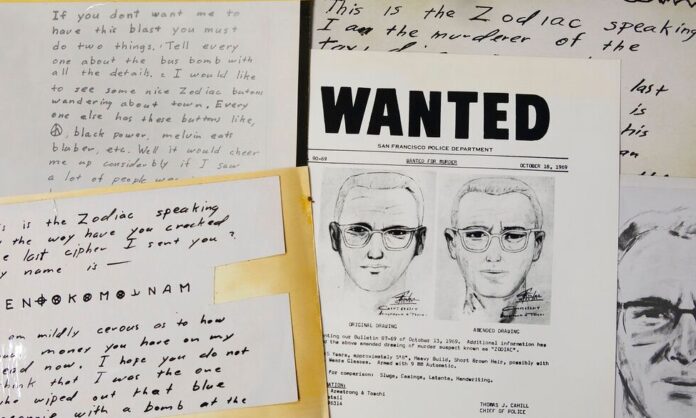 If you dont want me to
have this blast you must
do two things. Tell every
one about the bus bomb with
all the details. I would like
to see some nice Zodiac butons
wandering about town. Every
one else has these buttons like,
☮, black power, melvin eats
blaber, etc. Well it would cheer
me up considerbly if I saw
a lot of people
This is the Zodiac speaking
I am the murderer of the
last
is
his
an
is is the Zodiac speaking
the way have you cracked
last cipher I sent you?
name is —
mildly cerous as to how
money you have on my
now. I hope you do not
think that I was the one
who wiped out that blue
with a bomb at the
WANTED
SAN FRANCISCO POLICE DEPARTMENT
90-69 WANTED FOR MURDER OCTOBER 18, 1969
ORIGINAL DRAWING AMENDED DRAWING
our Bulletin 87-69 of October 13, 1969. Additional information has
the above amended drawing of murder suspect known as "ZODIAC".
Years, approximately 5'8", Heavy Build, Short Brown Hair, possibly with
Glasses. Armed with 9 MM Automatic.
for comparison: Slugs, Casings, Latents, Handwriting.
Armstrong & Toschi
THOMAS J. CAHILL
CHIEF OF POLICE